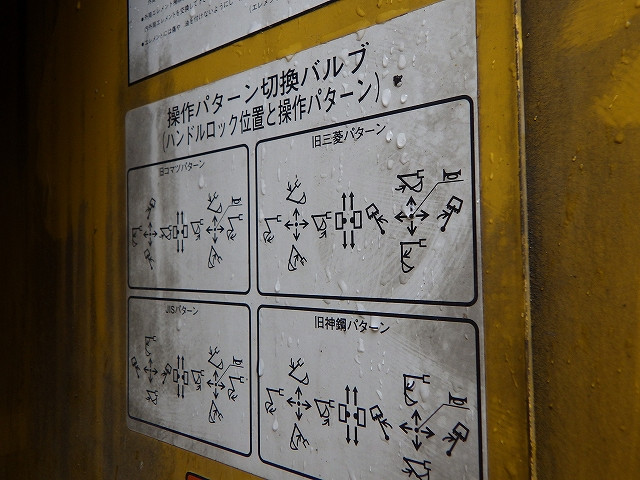 操作パターン切換バルブ
(ハンドルロック位置と操作パターン)
旧コマツパターン
旧三菱パターン
JISパターン
旧神鋼パターン